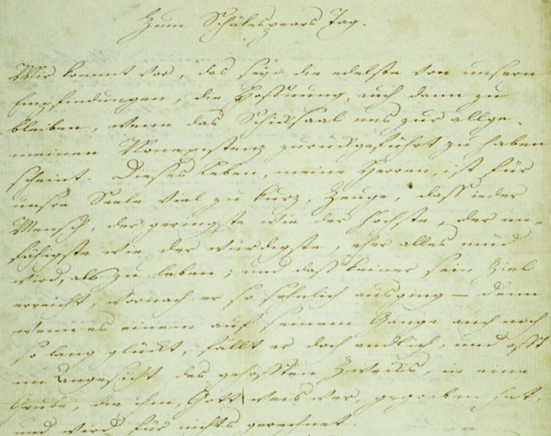 Zum Schäkespears Tag.
Mir kommt vor, das sey die edelste von unsern
Empfindungen, die Hoffnung, auch dann zu
bleiben, wenn das Schicksaal uns zur allge-
meinen Nonexistenz zurückgeführt zu haben
scheint. Dieses Leben, meine Herren, ist für
unsre Seele viel zu kurz, Zeuge, dass ieder
Mensch, der geringste wie der höchste, der un-
fähigste wie der würdigste, eher alles müd
wird, als zu leben; und dass keiner sein Ziel
erreicht, wornach er so sehnlich ausging — denn
wenn es einem auf seinem Gange auch noch
so lang glückt, fällt er doch endlich, und offt
im Angesicht des gehofften Zwecks, in eine
Grube, die ihm, Gott weis wer, gegraben hat,
und wird für nichts gerechnet.